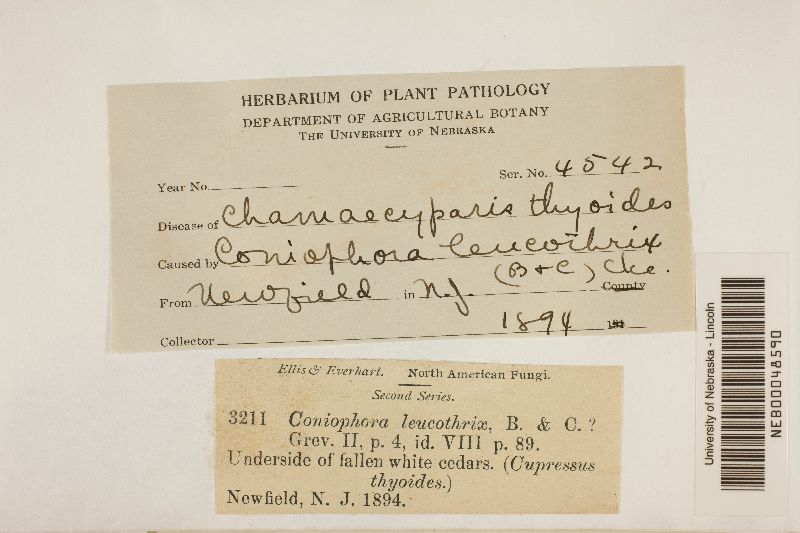 HERBARIUM OF PLANT PATHOLOGY
DEPARTMENT OF AGRICULTURAL BOTANY
THE UNIVERSITY OF NEBRASKA
Year No.
Ser. No. 4542
Disease of Chamaecyparis thyoides
Caused by Coniophora leucothrix
(B + C) Cke.
From Newfield in N.J. County
Collector 1894 191
Ellis & Everhart. North American Fungi.
Second Series.
3211 Coniophora leucothrix, B. & C. ?
Grev. II, p. 4, id. VIII p. 89.
Underside of fallen white cedars. (Cupressus
thyoides.)
Newfield, N. J. 1894.
University of Nebraska - Lincoln
NEB00048590